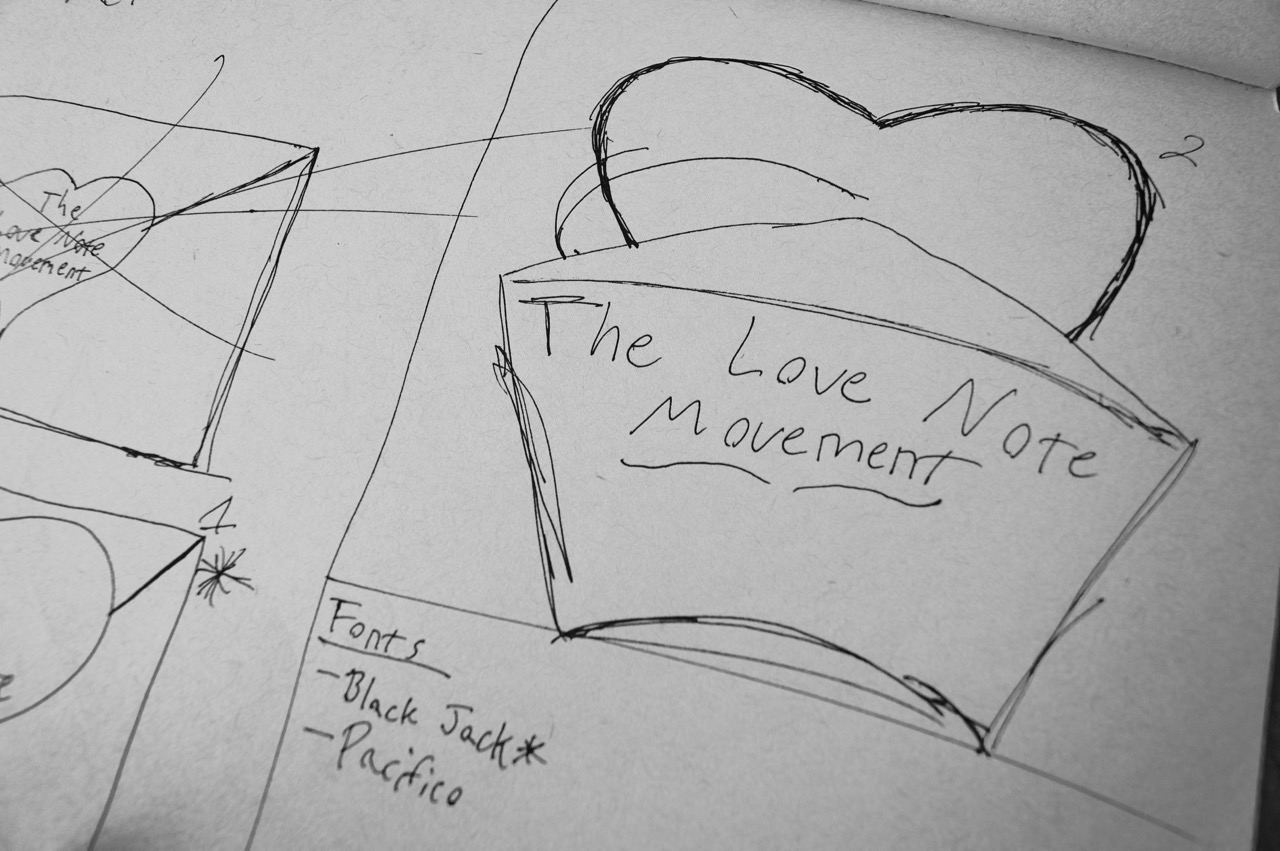 The
Love Note
Movement
1
2
The Love Note
Movement
Fonts
- Black Jack*
- Pacifico